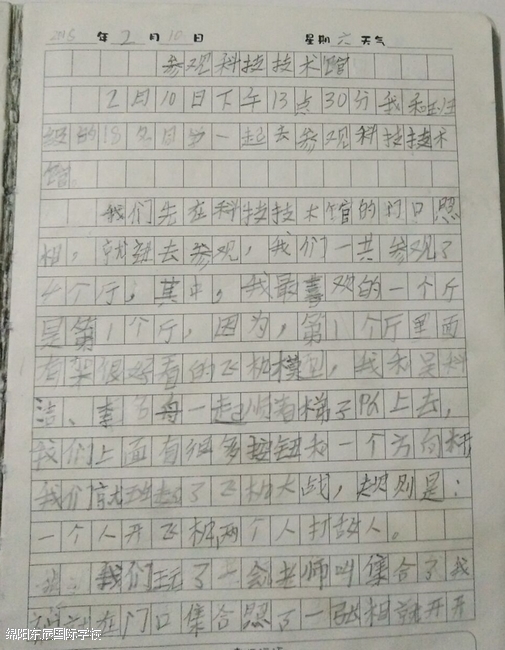 2015年2月10日 星期六天气
参观科技技术馆
2月10日下午13点30分我和班
级的18名同学一起去参观科技技术
馆。
我们先在科技技术馆的门口照
相，就进去参观，我们一共参观了
4个厅，其中，我最喜欢的一个厅
是第1个厅，因为，第1个厅里面
有架很好看的飞机模型，我和吴
洁、李 舟一起顺着梯子 上去，
我们上面有很多按钮和一个方向
我们就玩起了飞机大战，规则是：
一个人开飞机两个人打敌人。
我们玩了一会老师叫集合了我
们 在门口集合照了一张相就开开
绵阳东辰国际学校